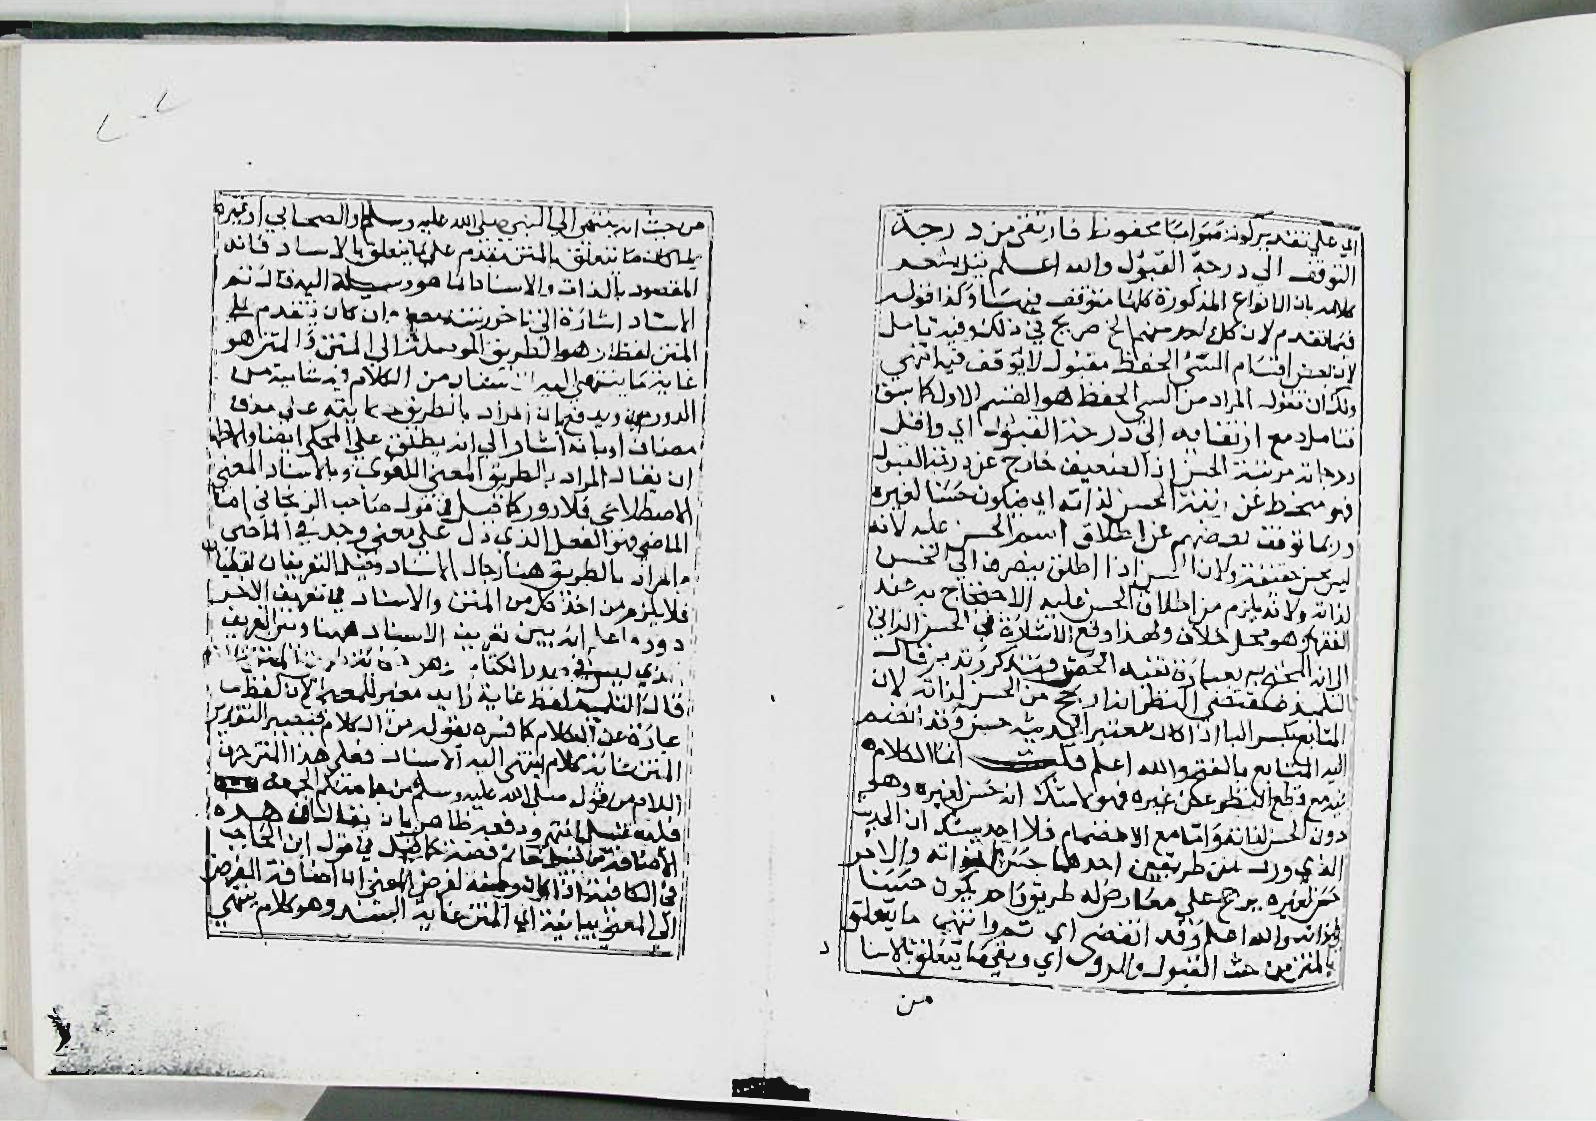 اي علي تقدير كونه صوابا محفوظا فارتقي من درجة
التوقف الي درجة القبول والله اعلم قيل يشعر
كلامه بان الانواع المذكورة كلها متوقف فيها وكذا قوله
فيما تقدم لان كل احد منهما الخ صريح في ذلك وفيه تامل
لان بعض اقسام السيئ الحفظ مقبول لا يوقف فيه انتهي
ولك ان تقول المراد من السيئ الحفظ هو القسم الاول كما سبق
فتامل ومع ارتقايه الي درجة القبول اي واقل
درجاته مرتبة الحسن اذ الضعيف خارج عن درجة القبول
فهو منحط عن رتبة الحسن لذاته اي فيكون حسنا لغيره
وربما توقف بعضهم عن اطلاق اسم الحسن عليه لانه
ليس بحسن حقيقة ولان الحسن اذا اطلق ينصرف الي الحسن
لذاته ولانه يلزم من اطلاق الحسن عليه الاحتجاج به عند
الفقهاء وهو محل خلاف ولهذا وقع الاشارة في الحسن الذاتي
الي انه المحتج به بعبارة تفيد الحصر فتذكر وتدبر قال
التلميذ مقتضي النظر انه ارجح من الحسن لذاته لان
المتابع بكسر الباء اذا كان معتبرا فحديثه حسن وقد انضم
اليه المتابع بالفتح والله اعلم قلت انما الكلام
فيه مع قطع النظر عن غيره فهو لا شك انه حسن لغيره وهو
دون الحسن لذاته واما مع الانضمام فلا احد يشك ان الحديث
الذي ورد من طريقين احدهما حسن لذاته والاخر
حسن لغيره يرجح علي معارض له طريق واحد يكون حسنا
لذاته والله اعلم وقد انقضي اي تم وانتهي ما يتعلق
بالمتن من حيث القبول والرد اي وبقي ما يتعلق بالاسنا
د
من
من حيث انه ينتهي الي النبي صلي الله عليه وسلم والصحابي او غيره
لما كان ما يتعلق بالمتن مقدم علي ما يتعلق بالاسناد فانه
المقصود بالذات والاسناد انما هو وسيلة اليه قال ثم
الاسناد اشارة الي تاخر رتبته وان كان يتقدم علي
المتن لفظا وهو الطريق الموصلة الي المتن والمتن هو
غاية ما ينتهي اليه الاسناد من الكلام فيه شايبة من
الدور ويدفع بان المراد بالطريق كما نبه علي حذف
مضاف او بانه اشار الي انه يطلق علي المحكم ايضا والاظهر
ان يقال المراد بالطريق المعني اللغوي وبالاسناد المعني
الاصطلاحي فلا دور كما قيل في قول صاحب الزنجاني اما
الماضي فهو الفعل الذي دل علي معني وجد في الماضي
والمراد بالطريق هنا رجال الاسناد وقيل التعريفان لفظيا
فلا يلزم من اخذ كل من المتن والاسناد في تعريف الاخر
دور واعلم انه بين تعريف الاسناد ههنا وبين التعريف
الذي سبق في صدر الكتاب
قال التلميذ لفظ غاية زايد مغير للمعني لان لفظ ما
عبارة عن الكلام كما فسره بقوله من الكلام فيصير التقدير
المتن غاية كلام ينتهي اليه الاسناد فعلي هذا المتن حرف
اللام من قوله صلي الله عليه وسلم من جا منكم الجمعة
فليغتسل انتهي ودفعه ظاهر بان يقال ان هذه
الاضافة من قبيل خاتم فضة كما قيل في قول ابن الحاجب
في الكافية اذا كان وصفه لغرض المعني انه اضافة الغرض
الي المعني بيانية اي المتن غاية السند وهو كلام ينتهي